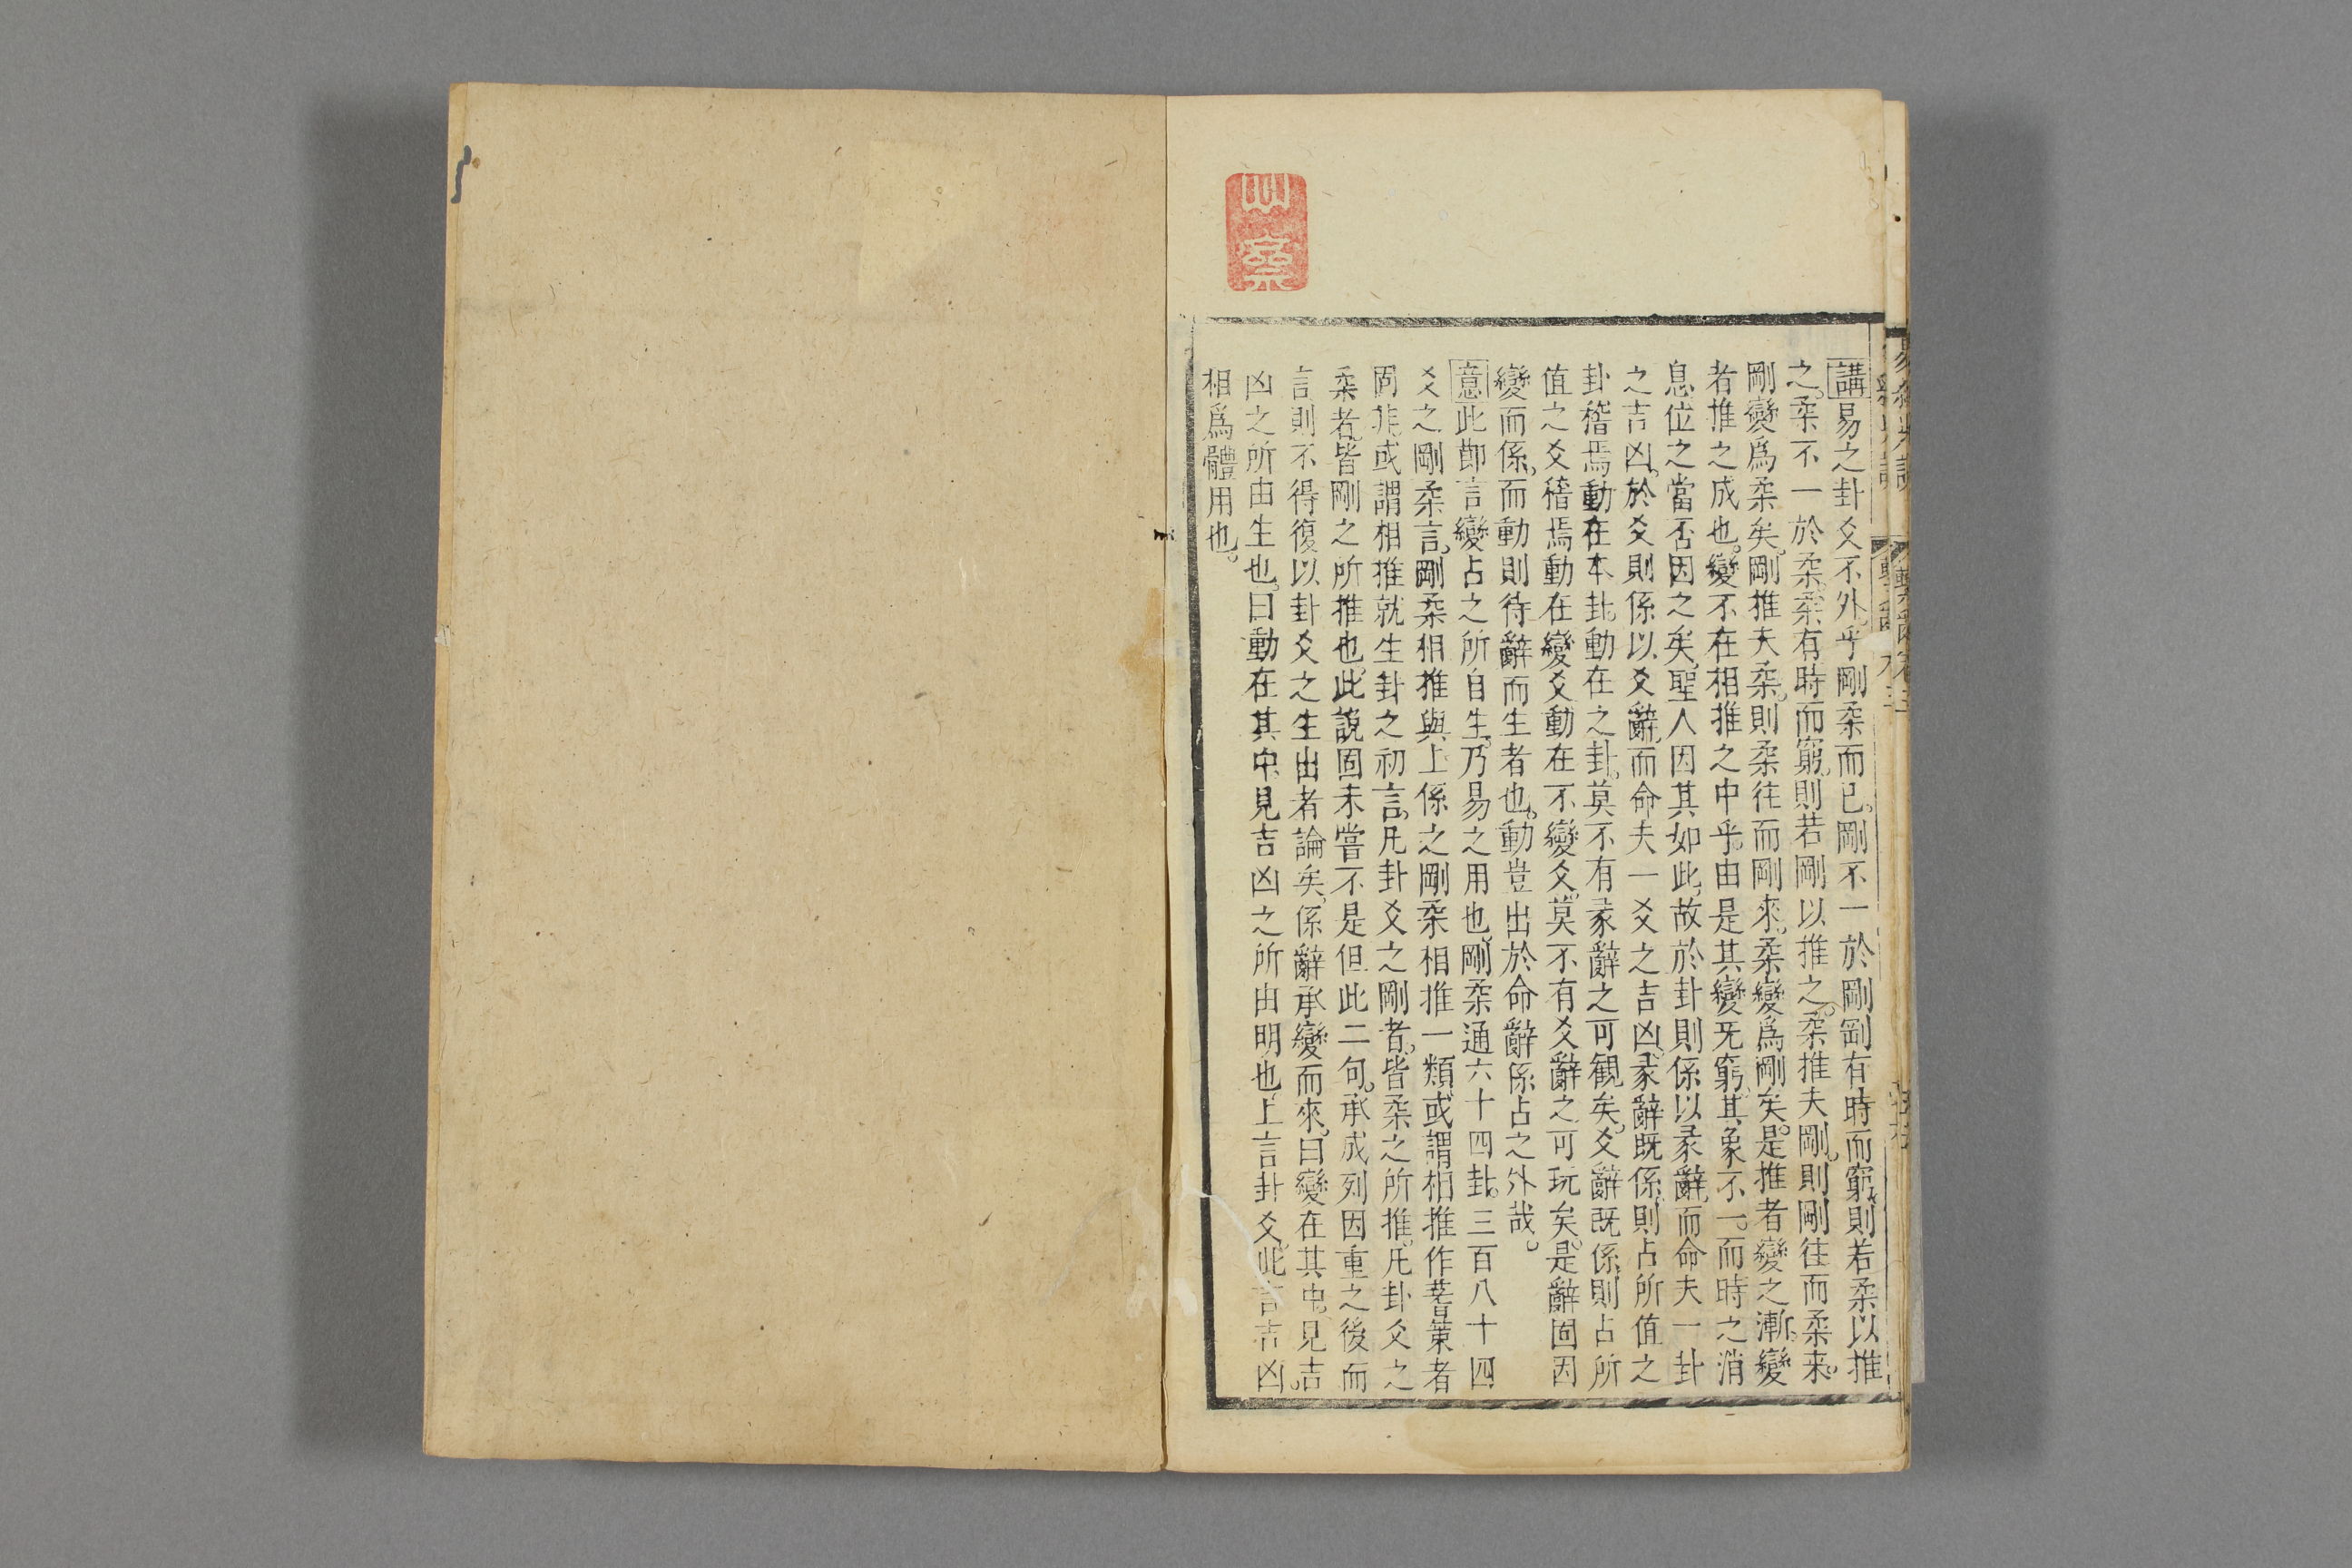 講易之卦爻不外乎剛柔而已。剛不一於剛剛有時而窮則若柔以推
之。柔不一於柔。柔有時而窮。則若剛以推之。柔推夫剛。則剛往而柔来。
剛變爲柔矣。剛推夫柔。則柔往而剛來。柔變爲剛矣。是推者變之漸。變
者推之成也。變不在相推之中乎。由是其變无窮。其象不一。而時之消
息位之當否因之矣。聖人因其如此。故於卦則係以彖辭。而命夫一卦
之吉凶。於爻則係以爻辭。而命夫一爻之吉凶。彖辭既係。則占所值之
卦稽焉。動在本卦。動在之卦。莫不有彖辭之可観矣。爻辭既係。則占所
值之爻稽焉。動在變爻動在不變爻。莫不有爻辭之可玩矣。是辭固因
變而係。而動則待辭而生者也。動豈出於命辭係占之外哉。
意此節言變占之所自生。乃易之用也。剛柔通六十四卦。三百八十四
爻之剛柔言。剛柔相推與上係之剛柔相推一類。或謂相推作蓍策者
固非。或謂相推就生卦之初言。凡卦爻之剛者。皆柔之所推。凡卦爻之
柔者。皆剛之所推也。此說固未嘗不是但此二句。承成列因重之後而
言則不得復以卦爻之生出者論矣。係辭承變而來。曰變在其中。見吉
凶之所由生也。曰動在其中。見吉凶之所由明也。上言卦爻。此言吉凶。
相爲體用也。